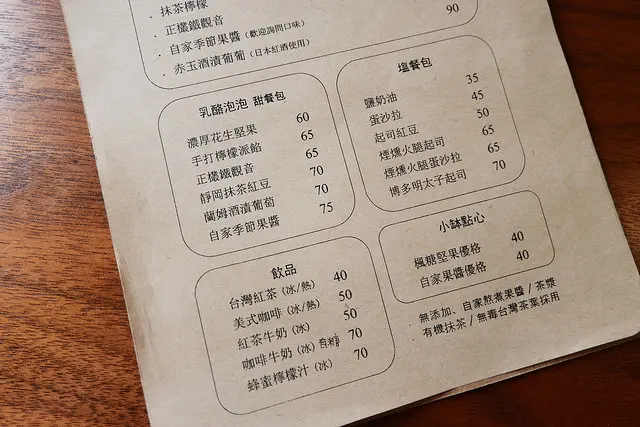 · 抹茶檸檬
· 正欉鐵觀音
· 自家季節果醬 (歡迎詢問口味)
· 赤玉酒漬葡萄 (日本紅酒使用)
90
乳酪泡泡 甜餐包
濃厚花生堅果 60
手打檸檬派餡 65
正欉鐵觀音 65
靜岡抹茶紅豆 70
蘭姆酒漬葡萄 70
自家季節果醬 75
塩餐包
鹽奶油 35
蛋沙拉 45
起司紅豆 50
煙燻火腿起司 65
煙燻火腿蛋沙拉 65
博多明太子起司 70
飲品
台灣紅茶 (冰/熱) 40
美式咖啡 (冰/熱) 50
紅茶牛奶 (冰) 50
咖啡牛奶 (冰) 70
蜂蜜檸檬汁 (冰) 70
小缽點心
楓糖堅果優格 40
自家果醬優格 40
· 無添加、自家熬煮果醬 / 茶漿
有機抹茶 / 無毒台灣茶葉採用